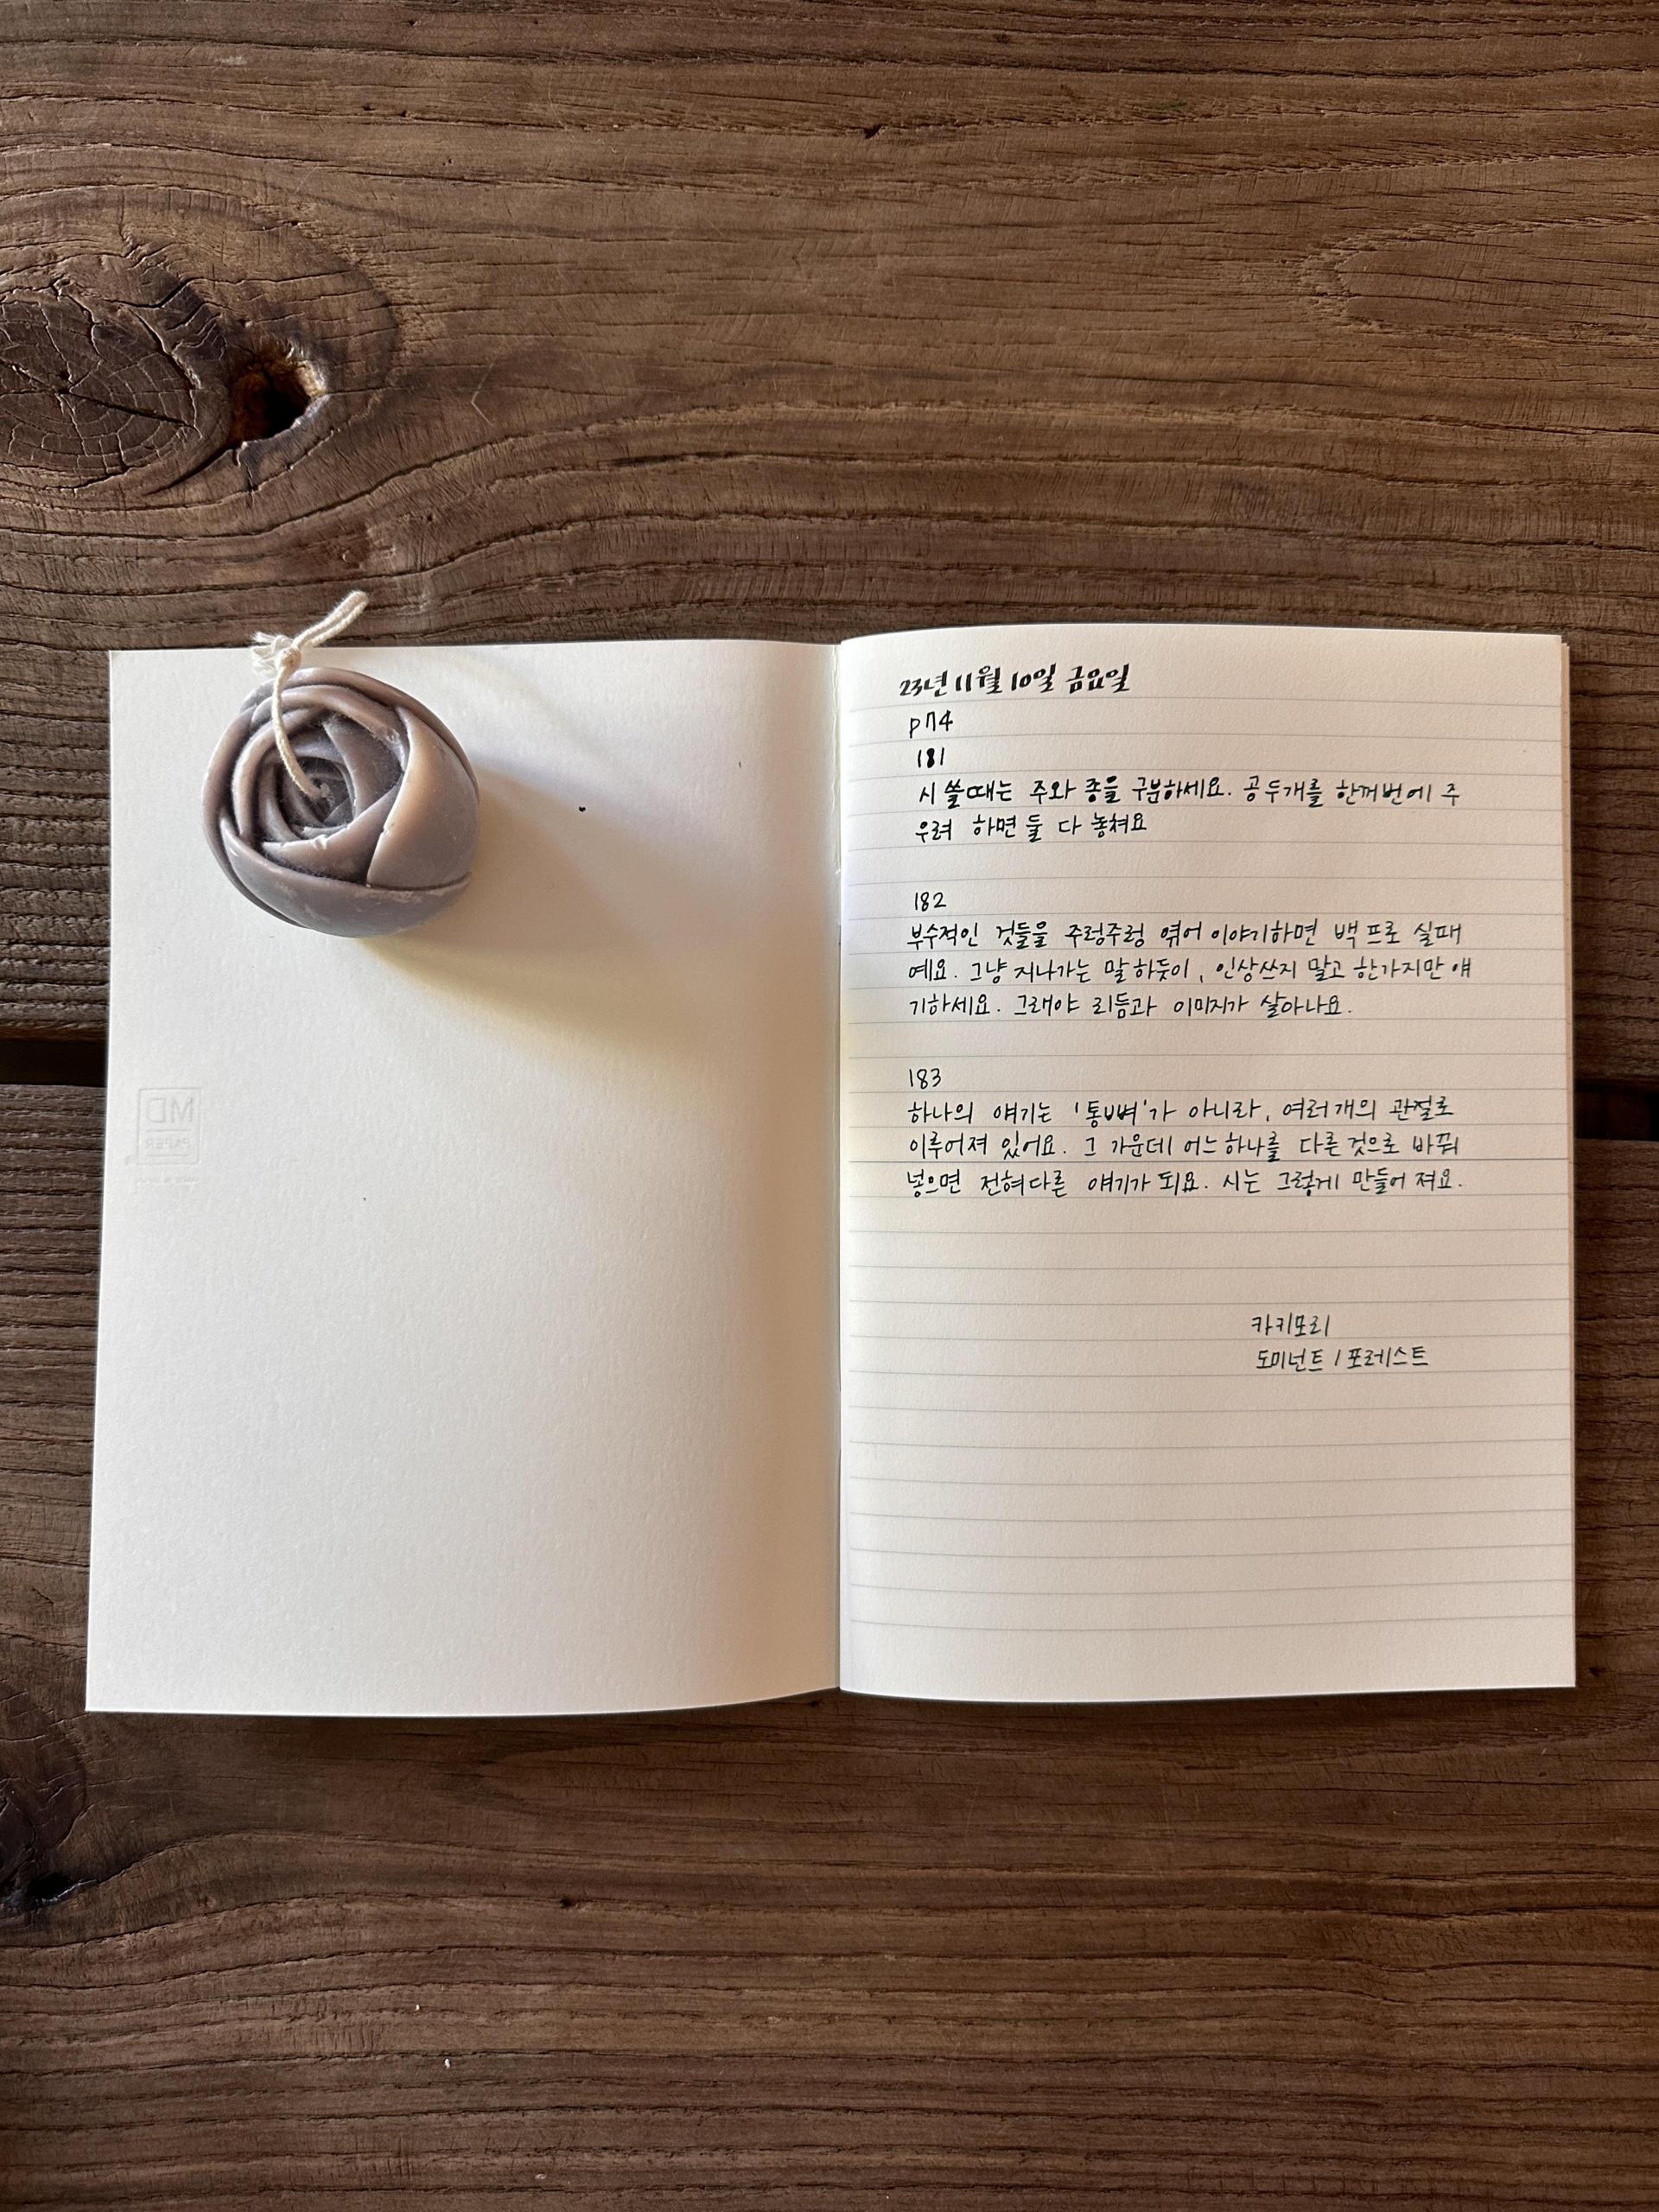 23년 11월 10일 금요일
p74
181
시 쓸 때는 주와 종을 구분하세요. 공 두개를 한꺼번에 주
우려 하면 둘 다 놓쳐요
182
부수적인 것들을 주렁주렁 엮어 이야기하면 백프로 실패
예요. 그냥 지나가는 말 하듯이, 인상쓰지 말고 한가지만 얘
기하세요. 그래야 리듬과 이미지가 살아나요.
183
하나의 얘기는 '통뼈'가 아니라, 여러개의 관절로
이루어져 있어요. 그 가운데 어느 하나를 다른 것으로 바꿔
넣으면 전혀 다른 얘기가 되요. 시는 그렇게 만들어 져요.
카키모리
도미넌트 / 포레스트
MD
PAPER